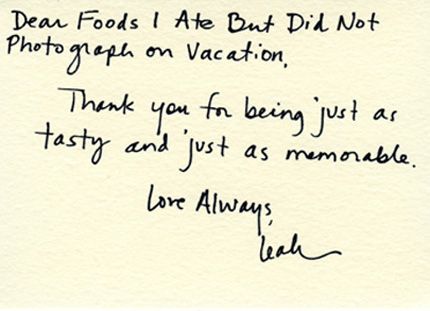 Dear Foods I Ate But Did Not
Photograph on Vacation,
Thank you for being just as
tasty and just as memorable.
Love Always,
Leah